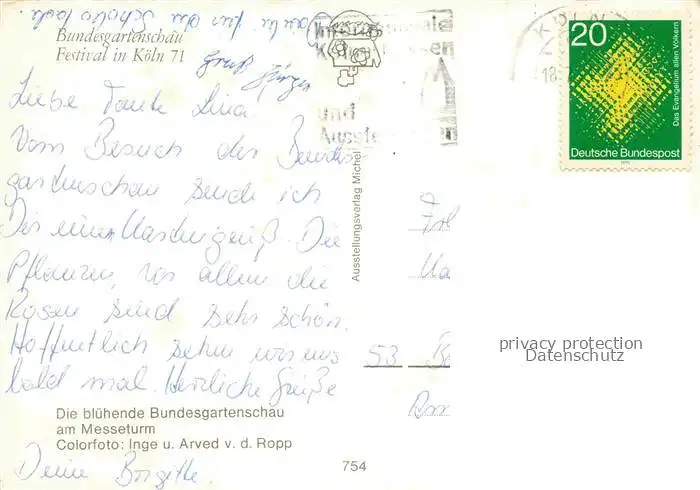 auch für die Schokolade.
Bundesgartenschau
Festival in Köln 71
Gruß Jürgen
Internationale
und
20
Das Evangelium allen Völkern
Deutsche Bundespost
Liebe Tante Lina
Vom Besuch der Bundes
gartenschau sende ich
Dir einen Kartengruß. Die
Pflanzen, vor allem die
Rosen sind sehr schön.
Hoffentlich sehen wir uns
bald mal. Herzliche Grüße
Deine Birgitte.
Ausstellungsverlag Michel
53
privacy protection
Datenschutz
Die blühende Bundesgartenschau
am Messeturm
Colorfoto: Inge u. Arved v. d. Ropp
754